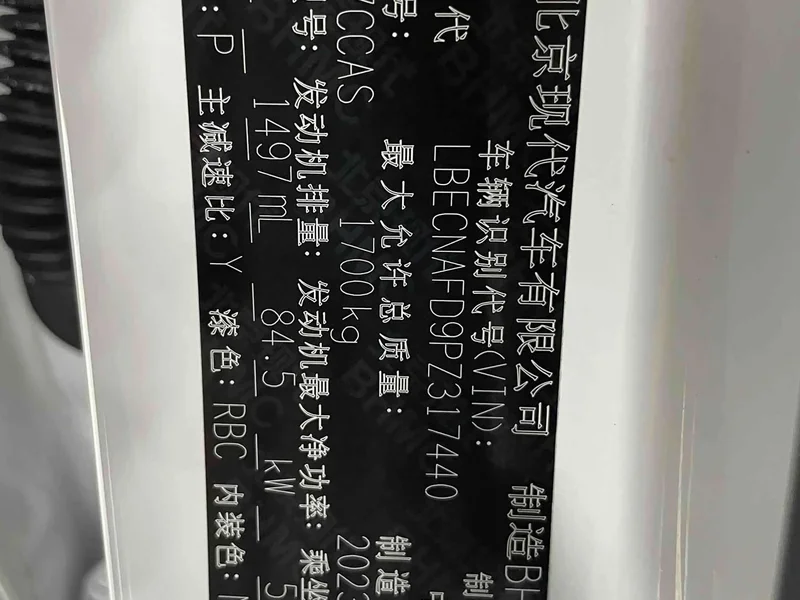 北京现代汽车有限公司 制造BH
代 车辆识别代号(VIN): 制
LBECNAFD9PZ317440
号: 最大允许总质量: 制造
7CCAS 1700kg 2023
号: 发动机排量: 发动机最大净功率: 乘坐
1497mL 84.5 kW 5
: P 主减速比: Y 漆色: RBC 内装色: